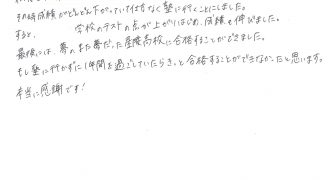 その時成績がどんどん下がっていて仕方なく塾に行くことにしました。
すると、学校のテストの点が上がりはじめ、成績も伸びました。
最後には、夢のまた夢だった志望高校に合格することができました。
もし塾に行かずに1年間を過ごしていたらきっと合格することができなかったと思います。
本当に感謝です!